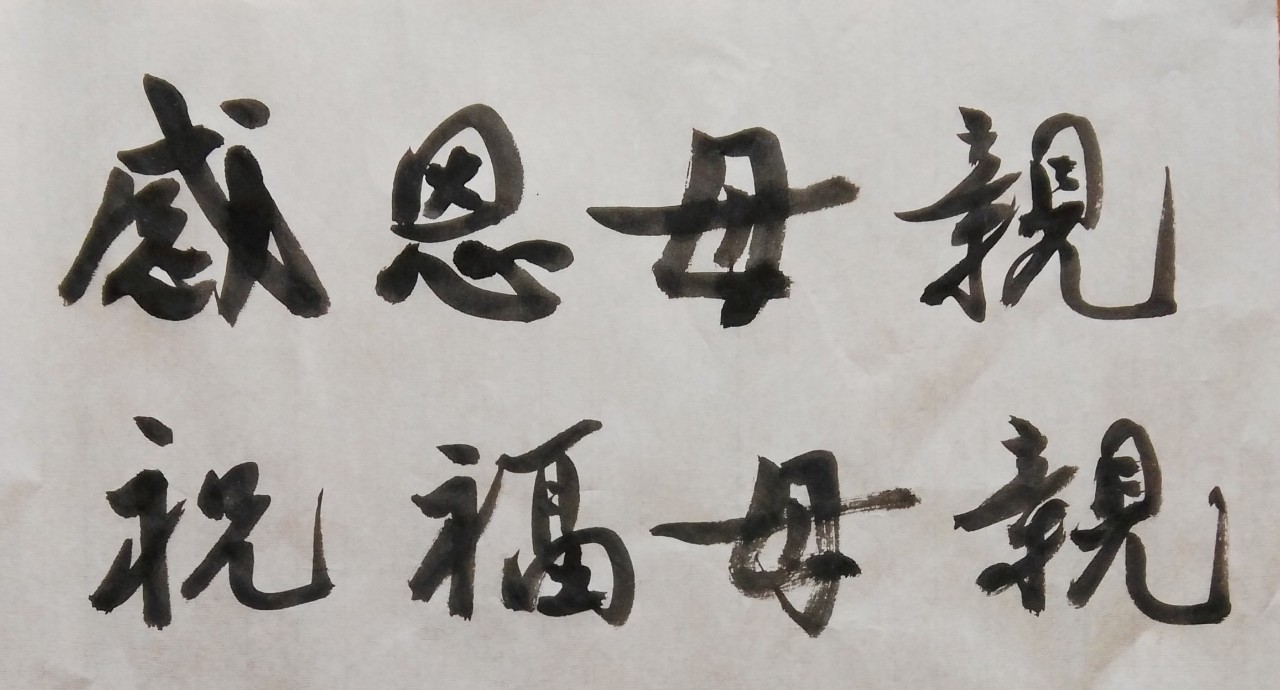 感恩母親
祝福母親